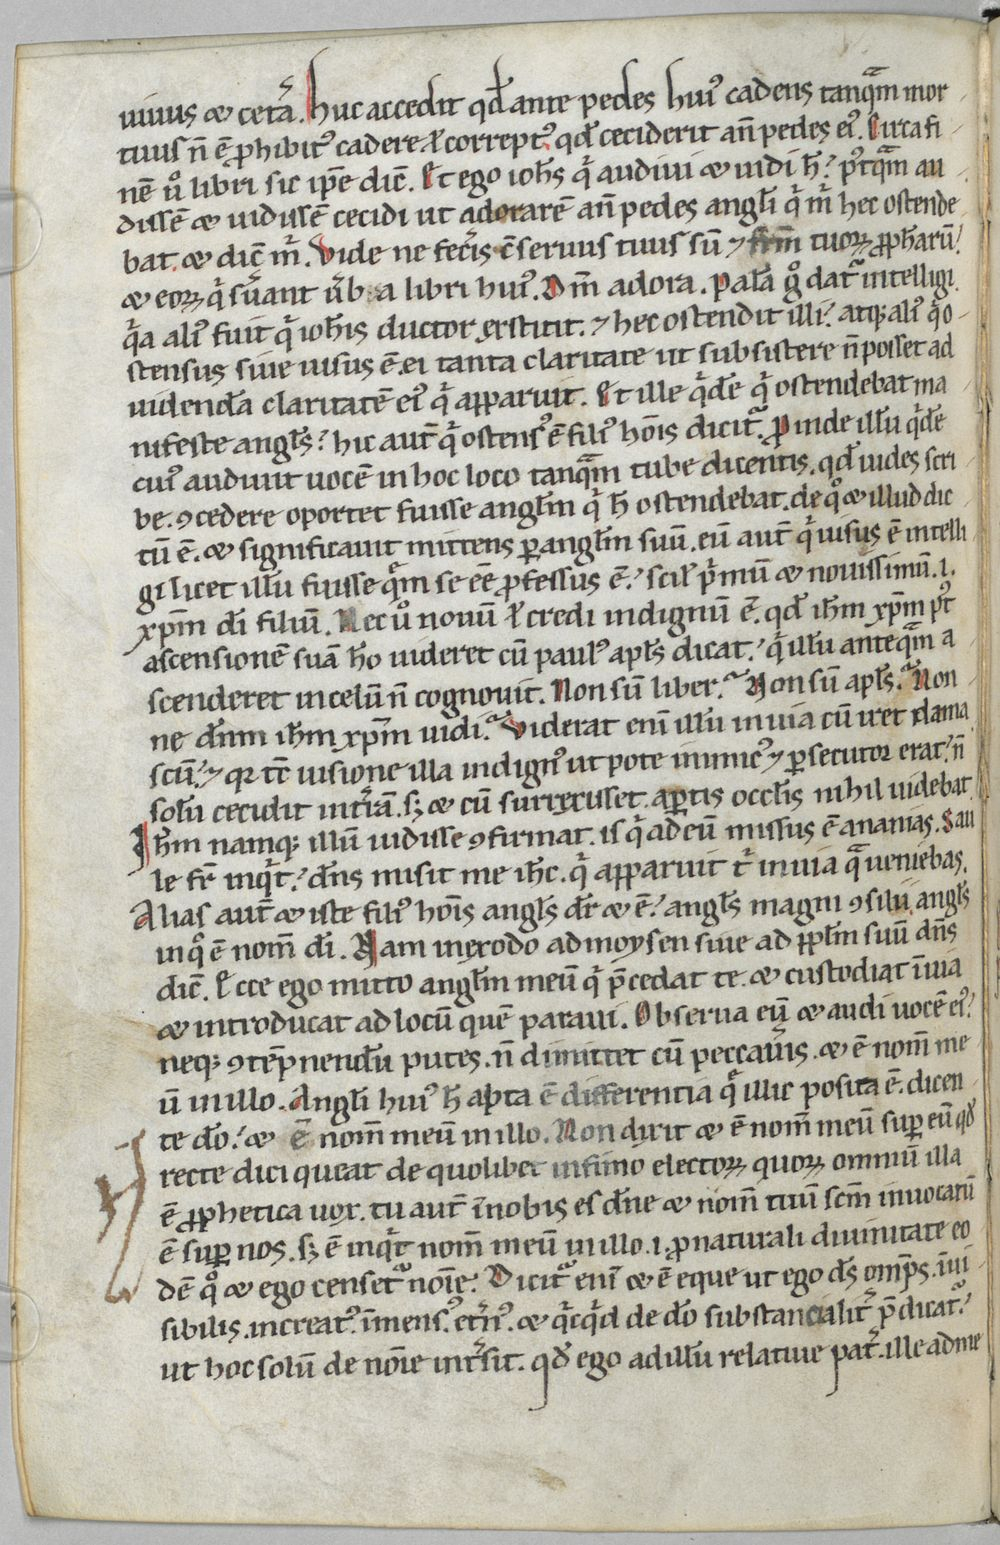 uiuus & cetᷓa. huc accedit qđ ante pedes huiꝰ cadens tanqᷓm mor
tuus ñ ē ꝓhibitꝰ cadere ł correptꝰ. qđ ceciderit an̄ pedes eiꝰ. Circa fi
nē u̓o libri sic ip̄e dic̄. Et ego ioħs qⁱ audiui & uidi ħ? p̓tqᷓm au
dissē & uidissē cecidi ut adorarē an̄ pedes angłi qⁱ m̓ hec ostende
bat. & dic̄ m̓. Vide ne fec̓is ē seruus tuus sū ⁊ fr̄m tuoꝝ ꝓpħarū?
& eoꝝ qⁱ s̓uant u̓ba libri huiꝰ. Dm̄ adora. Palā gͦ datᷣ intelligi
qⁱa aliꝰ fuit qⁱ ioħis ductor exstitit. ⁊ hec ostendit illi? atqꝫ aliꝰ qⁱ o
stensus siue uisus ē. ei tanta claritate ut subsistere ñ posset ad
uidendā claritatē eiꝰ qⁱ apparuit. Et ille qⁱdē qⁱ ostendebat ma
nifeste angłs? hic aut̄ qⁱ ostensꝰ ē filiꝰ hoīs dicitᷣ. Proinde illū qⁱdē
cuiꝰ audiuit uocē in hoc loco tanqᷓm tube dicentis. qđ uides scri
be. ꝯcedere oportet fuisse angłm qⁱ ħ ostendebat. de qͦ & illud dic
tū ē. & significauit mittens ꝑ angłm suū. eū aut̄ qⁱ uisus ē intelli
gi licet illū fuisse qᷓm se eē ꝓfessus ē? scił pⁱmū & nouissimū .i.
xp̄m di filiū. Nec u̓o nouū ł credi indignū ē. qđ ihm xp̄m p̓t
ascensionē suā ħo uideret cū paulꝰ apłs dicat? qⁱ illū anteqᷓm a
scenderet in celū ñ cognouit. Non sū liber? Non sū apłs? Non
ne dn̄m ihm xp̄m uidi? Viderat eni illū in uia cū iret dama
scū? ⁊ qr tc̄ uisione illa indignꝰ ut pote inimicꝰ ⁊ ꝑsecutor erat? ñ
solū cecidit in t̓rā. sꝫ & cū surrexisset. aꝑtis occłis nihil uidebat
Ihm namqꝫ illū uidisse ꝯfirmat. is qⁱ ad eū missus ē ananias. Sau
le fr̄ inqⁱt? dn̄s misit me ihc. qⁱ apparuit tⁱ in uia qᷓ ueniebas.
Alias aut̄ & iste filiꝰ hoīs angłs dr̄ & ē? angłs magni ꝯsilii. angłs
in qͦ ē nom̄ di. Nam in exodo ad moysen siue ad ppłm suū dn̄s
dic̄. Ecce ego mitto angłm meū qⁱ p̄cedat te. & custodiat ī uia
& introducat ad locū quē paraui. Obserua eū & audi uocē eiꝰ?
neqꝫ ꝯtēpnendū putes. ñ dimittet cū peccau̓is. & ē nom̄ me
ū in illo. Angłi huiꝰ ħ aꝑta ē differentia qᷓ illic posita ē. dicen
te do? & ē nom̄ meū in illo. Non dixit & ē nom̄ meū suꝑ eū qđ
recte dici queat de quolibet infimo electoꝝ quoꝝ omniū illa
ē ꝓphetica uox. tu aut̄ ī nobis es dn̄e & nom̄ tuū scm̄ inuocatū
ē suꝑ nos. sꝫ ē inqⁱt nom̄ meū in illo .i. ꝓ naturali diuinitate eo
dē qͦ & ego censetᷣ noīe? Dicitᷣ eni & ē eque ut ego ds omps. īui
sibilis. increatꝰ. īmensꝰ. et̓nꝰ. & qⁱcqⁱd de do substancialit̓ p̄dicatᷣ?
ut hoc solū de noīe int̓sit. qđ ego ad illū relatiue pat̓. ille ad me